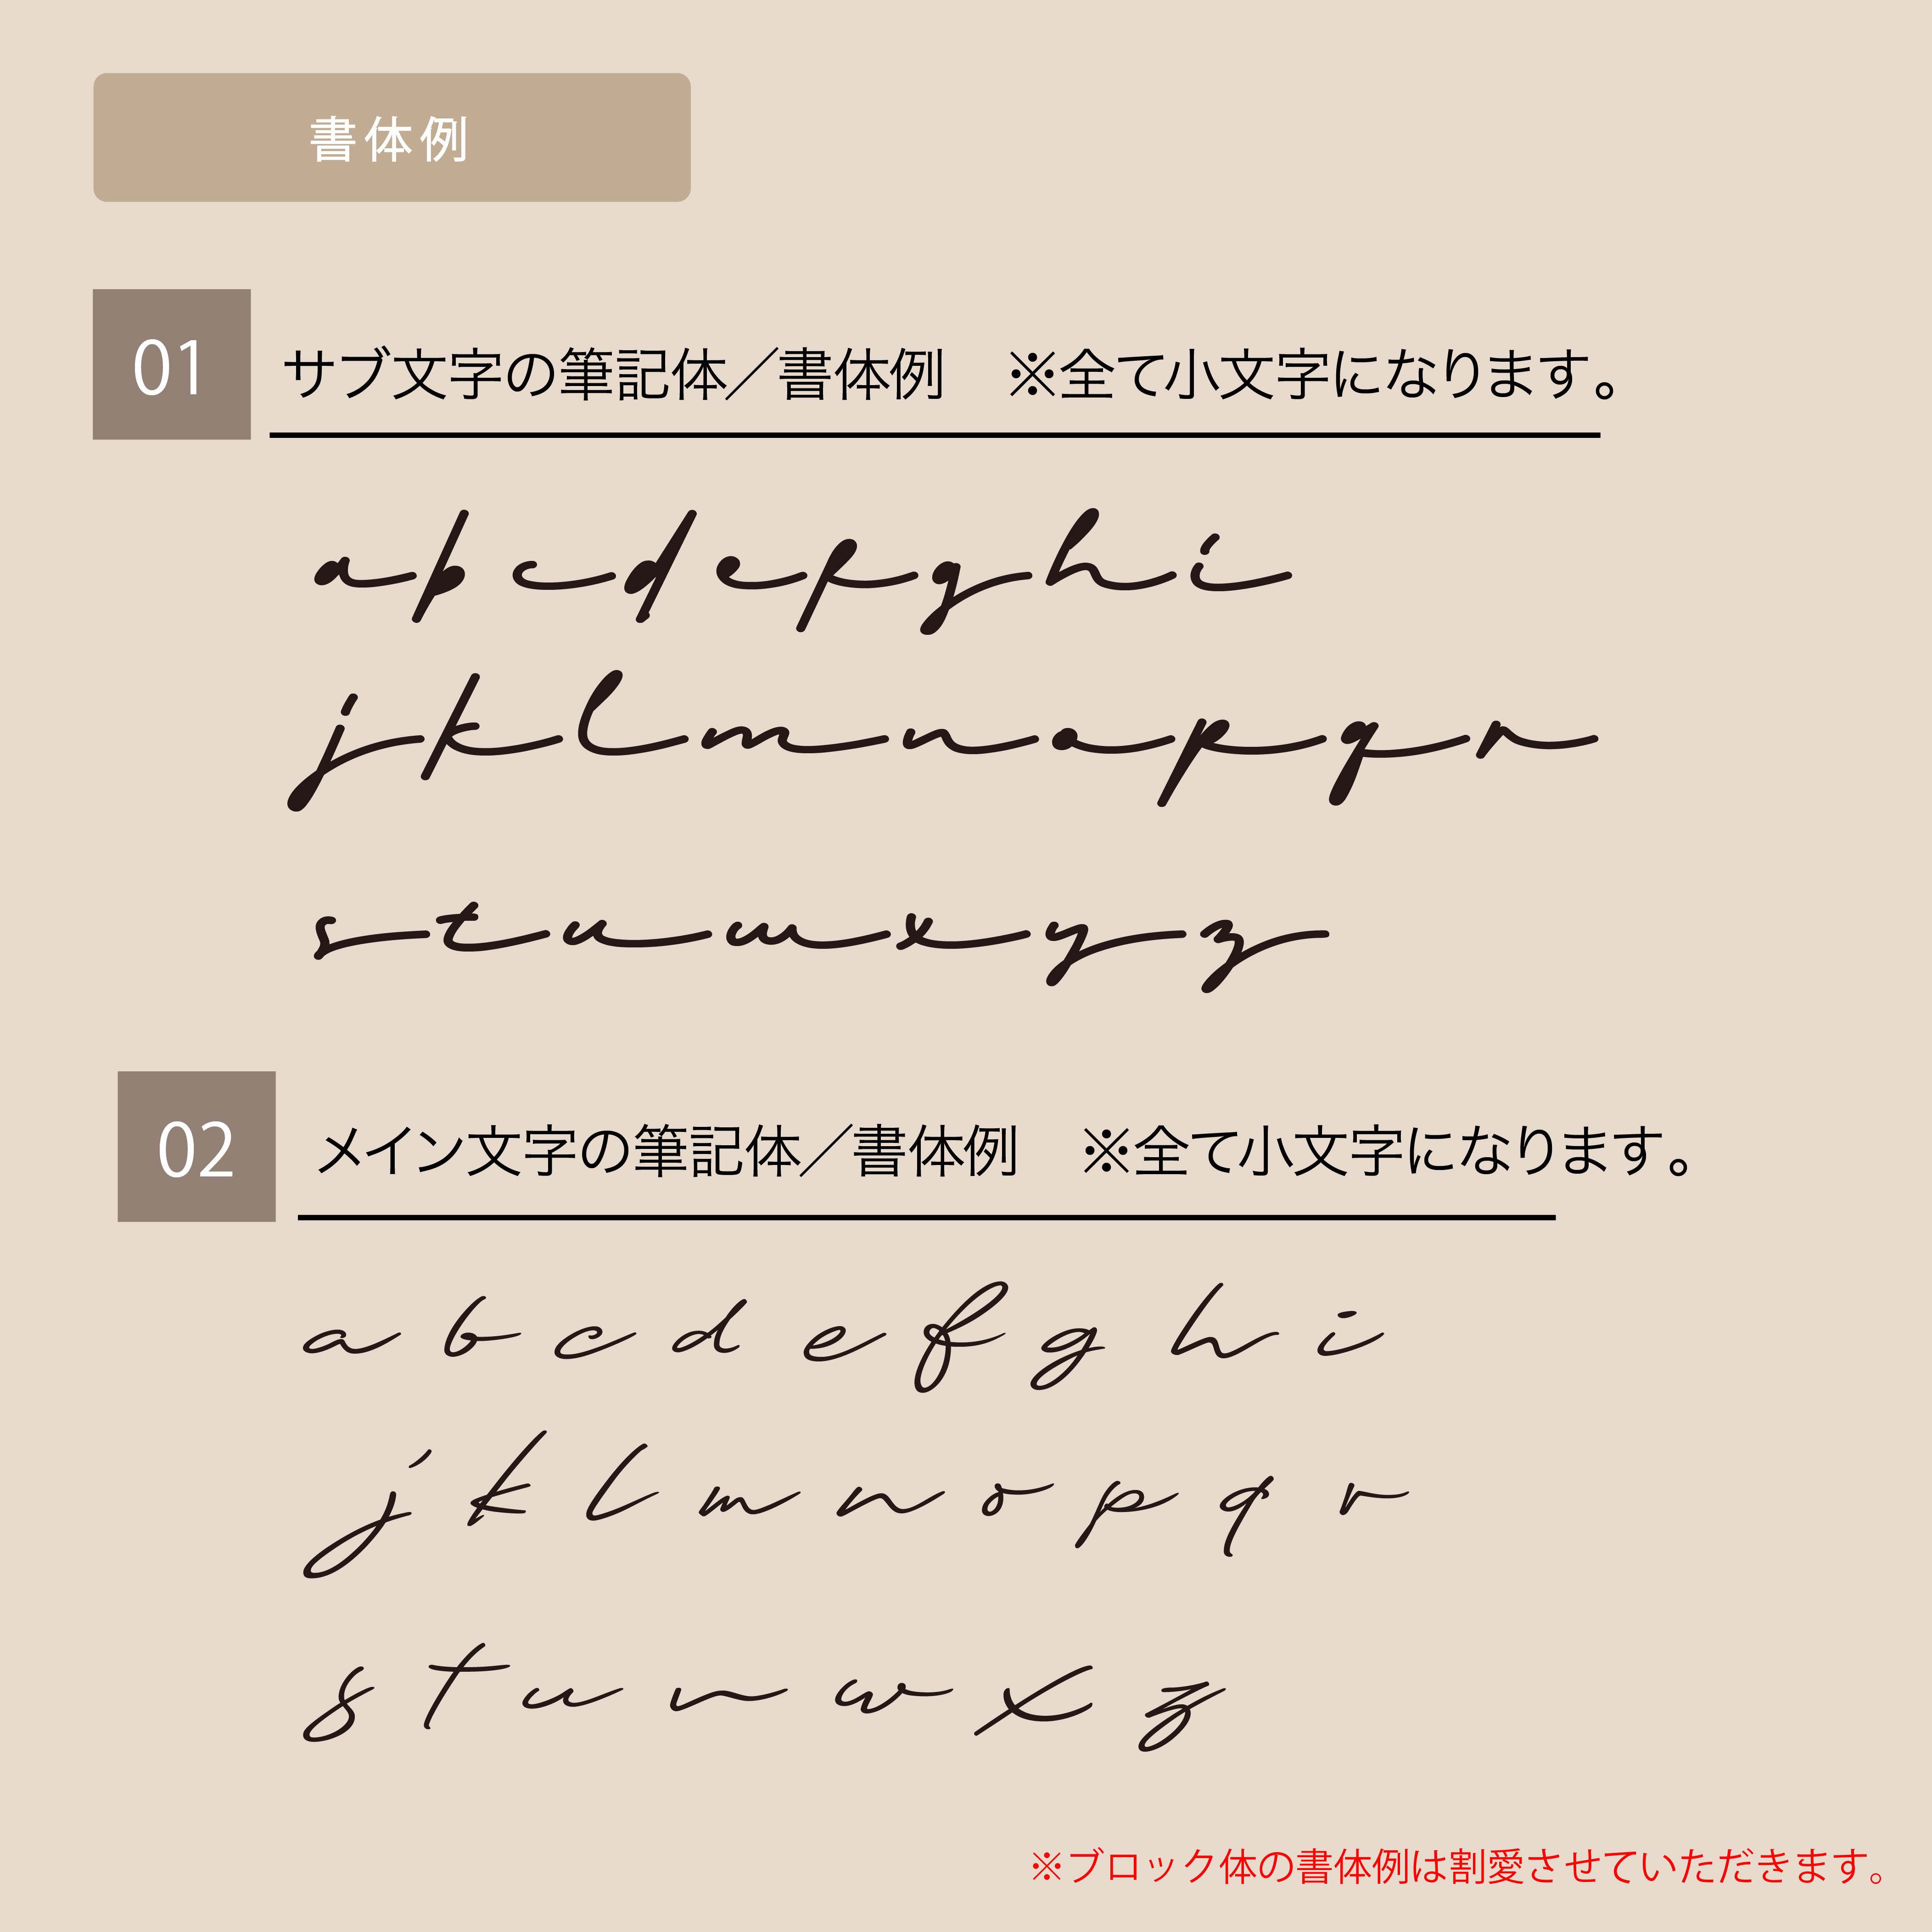 書体例
01 サブ文字の筆記体／書体例　※全て小文字になります。
a b c d e f g h i
j k l m n o p q r
s t u w x y z
02 メイン文字の筆記体／書体例　※全て小文字になります。
a b c d e f g h i
j k l m n o p q r
s t u v w x z
※ブロック体の書体例は割愛させていただきます。